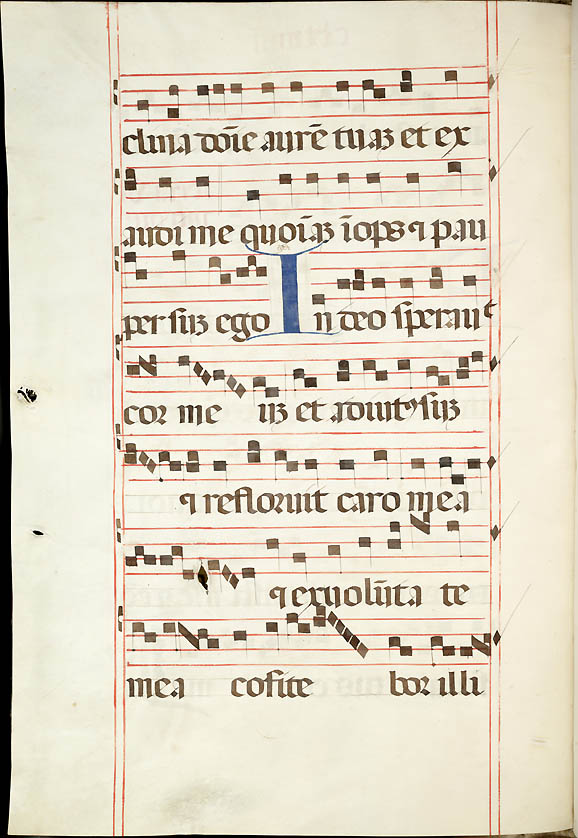 clina dōīe aurē tuaȝ et ex
audi me quoīaȝ īops ⁊ pau
per suȝ ego In deo sperauit
cor me uȝ et adiutꝰ suȝ
⁊ refloruit caro mea
⁊ exuolūta te
mea cōfite bor illi